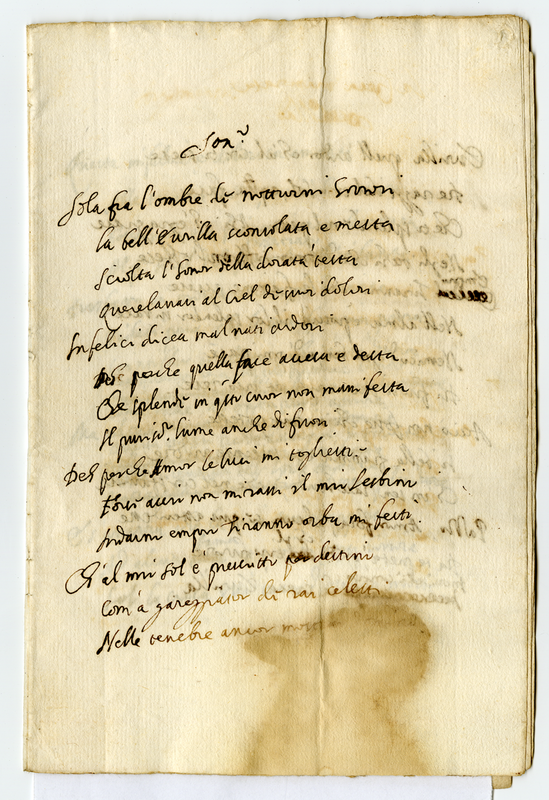 Son.º
Sola fra l'ombre de notturni orrori
la bell' Eurilla sconsolata e mesta
sciolta l'honor della dorata testa
querelavasi al Ciel de suoi dolori
Infelici dicea mal nati ardori
Deh perche quella face accesa e desta
Che splende in q.to cuor non manifesta
Il suo lume anche di fuori
Deh perche Amor le luci mi togliesti
non mirassi il mio
empio tiranno orba mi festi
Ch'al mio sol è prescritto per destino
Com' a de rai celesti
Nelle tenebre ancor